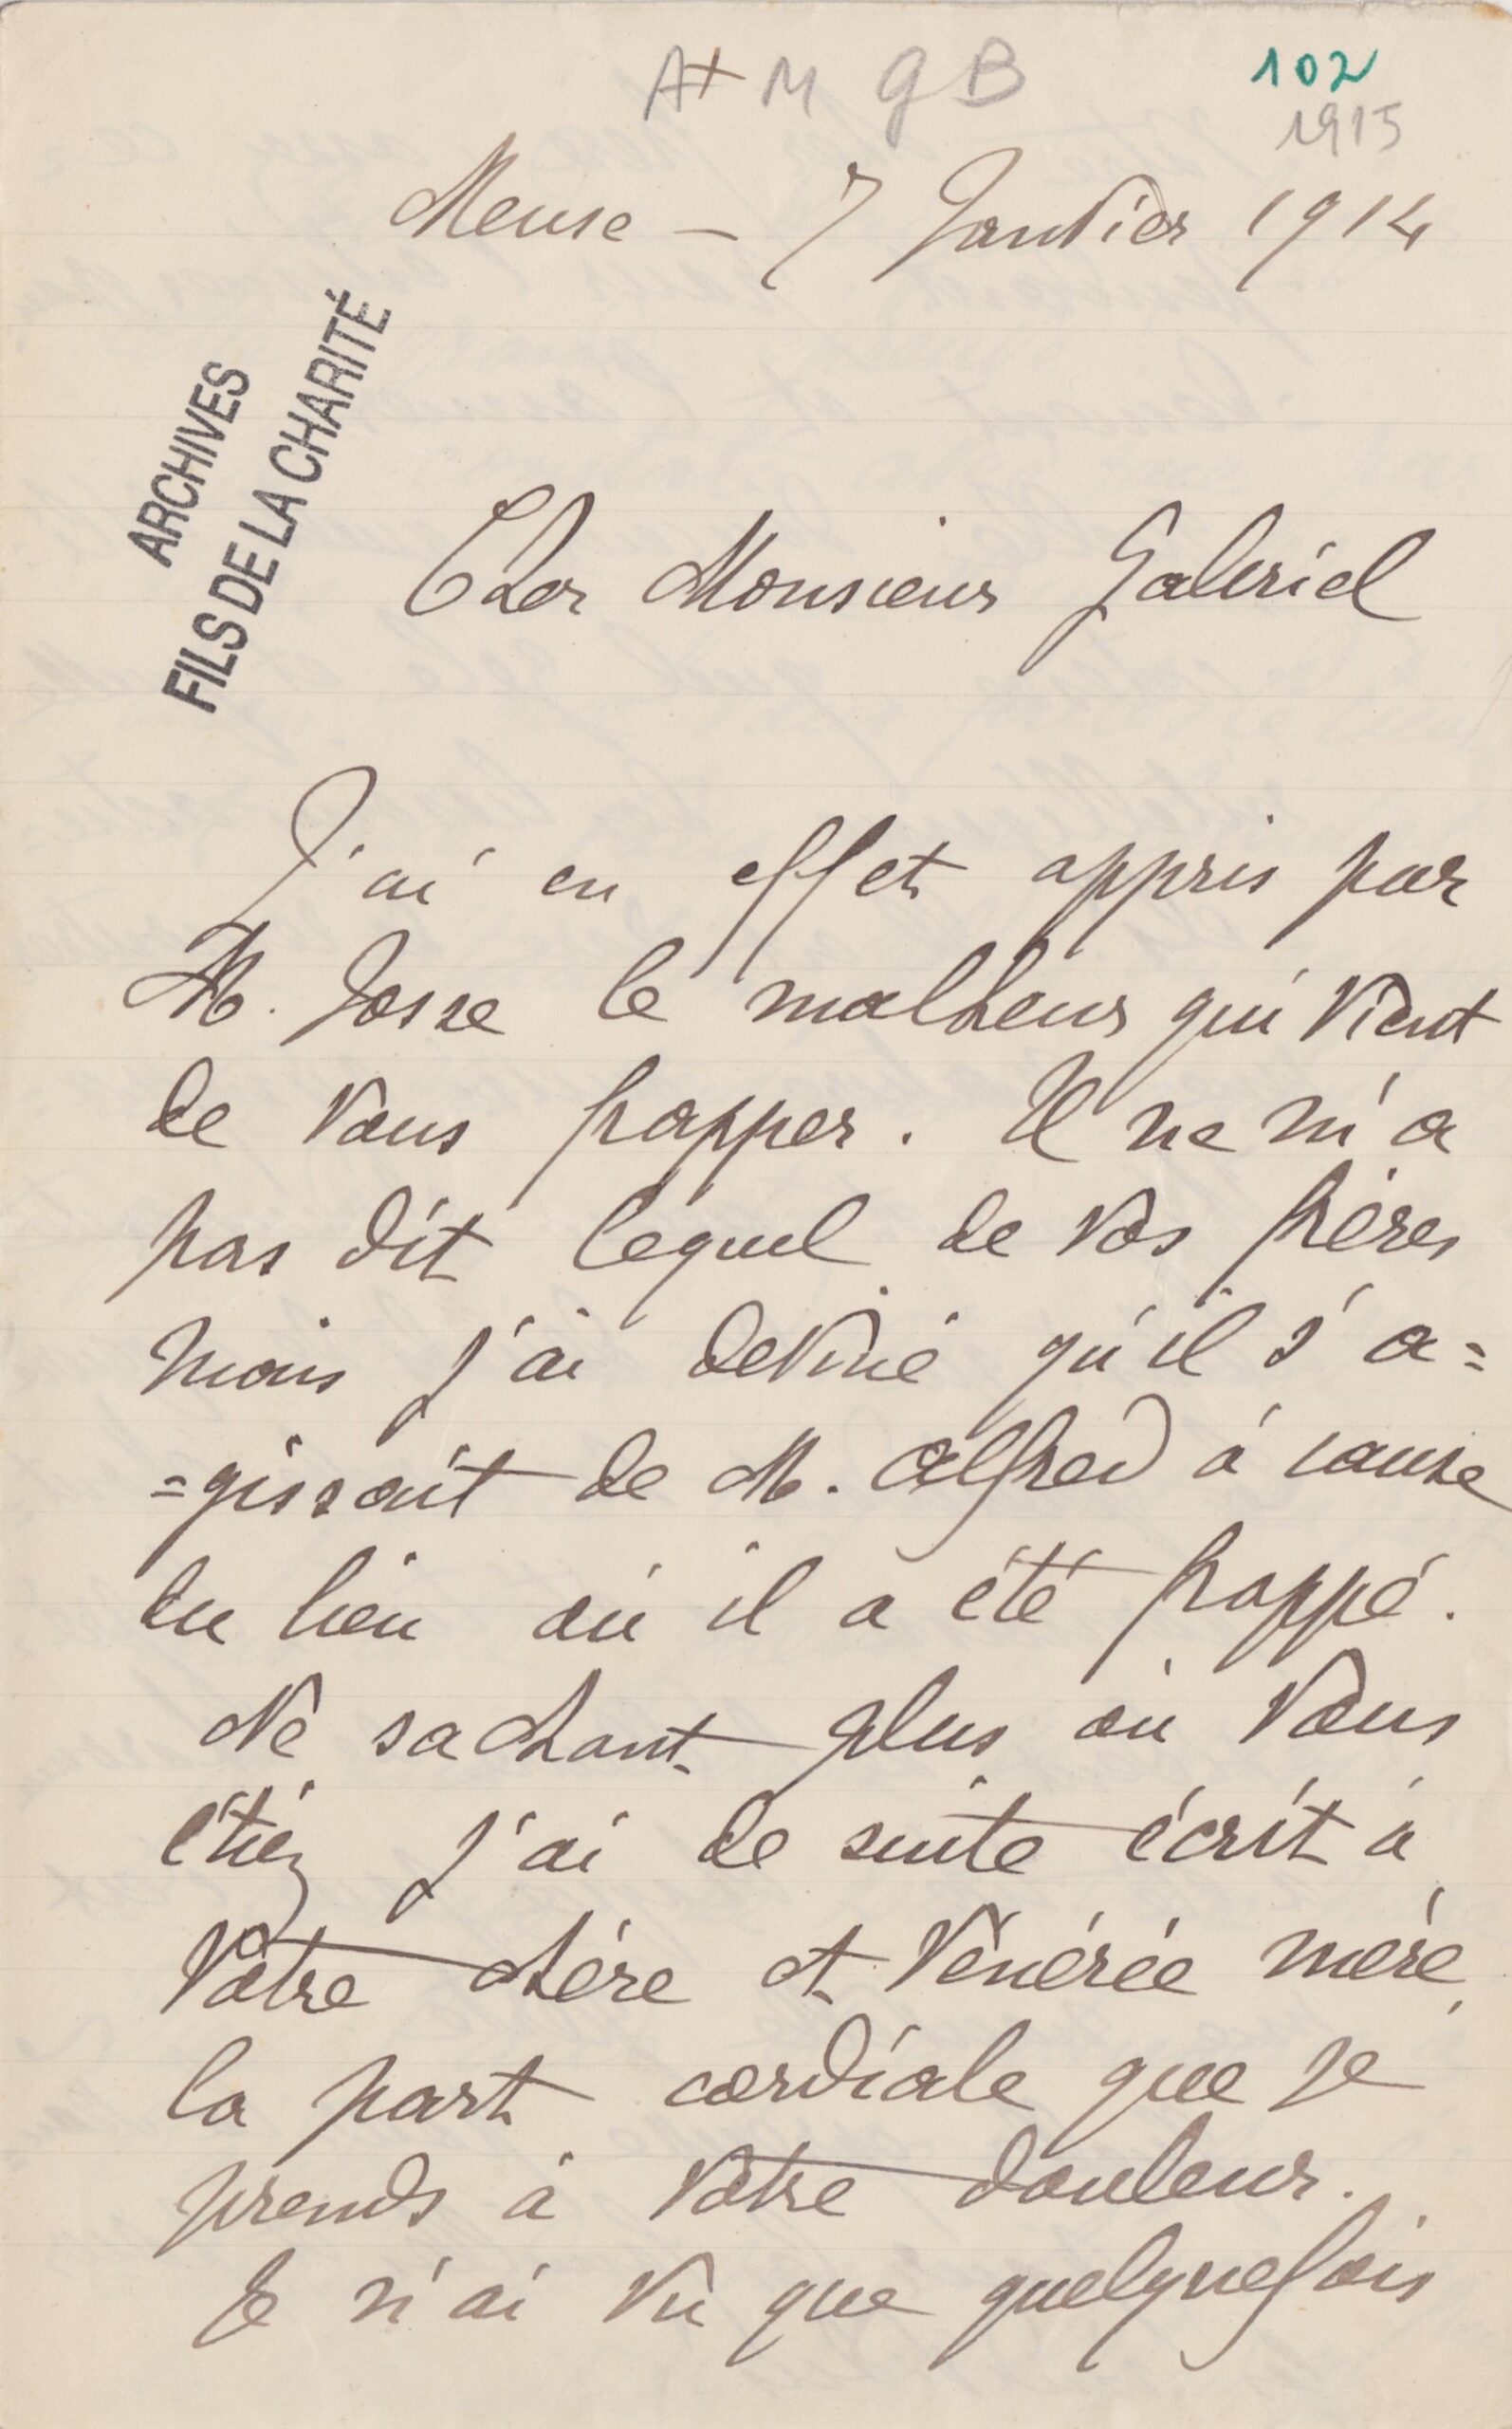 A+ M g B
102
1915
Meuse – 7 Janvier 1914
ARCHIVES
FILS DE LA CHARITÉ
Cher Monsieur Gabriel
J'ai en effet appris par
M. Josse le malheur qui vient
de vous frapper. Il ne m'a
pas dit lequel de vos frères
mais j'ai deviné qu'il s'a=
=gissait de M. Alfred à cause
du lieu où il a été frappé.
Ne sachant plus où vous
étiez j'ai de suite écrit à
votre chère et vénérée mère,
la part cordiale que je
prends à votre douleur.
Je n'ai vu que quelquefois